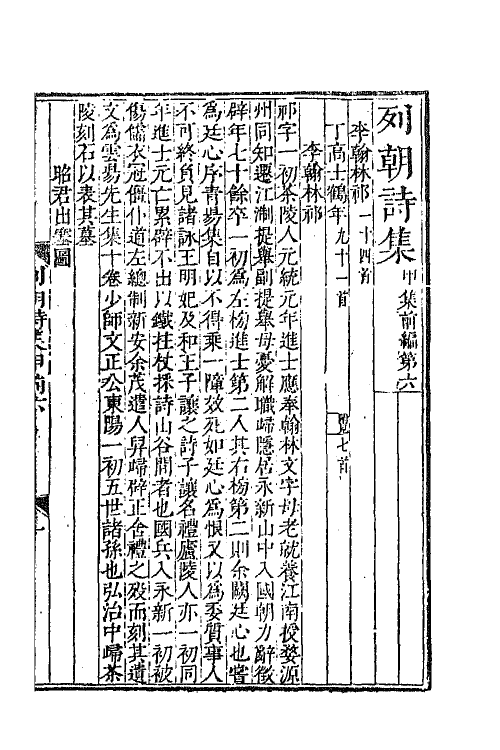 列朝詩集 甲集前編第六
李翰林祁一十四首
丁高士鶴年九十一首 七首
李翰林祁
祁字一初茶陵人元統元年進士應奉翰林文字母老就養江南授婺源
州同知遷江浙提舉副提舉母憂解職歸隱居永新山中入國朝力辭徵
辟年七十餘卒一初為左榜進士第二人其右榜第二則余闕廷心也嘗
為廷心序青昜集自以不得乘一障效死如廷心為恨又以為委質事人
不可終負見諸詠王明妃及和王子讓之詩子讓名禮廬陵人亦一初同
年進士元亡累辟不出以鐵柱杖採詩山谷間者也國兵入永新一初被
傷儒衣冠僵仆道左總制新安余茂遣人舁歸辟正舍禮之歿而刻其遺
文為雲昜先生集十卷少師文正公東陽一初五世諸孫也弘治中歸茶
陵刻石以表其墓
昭君出塞圖
列朝詩集甲前六 一